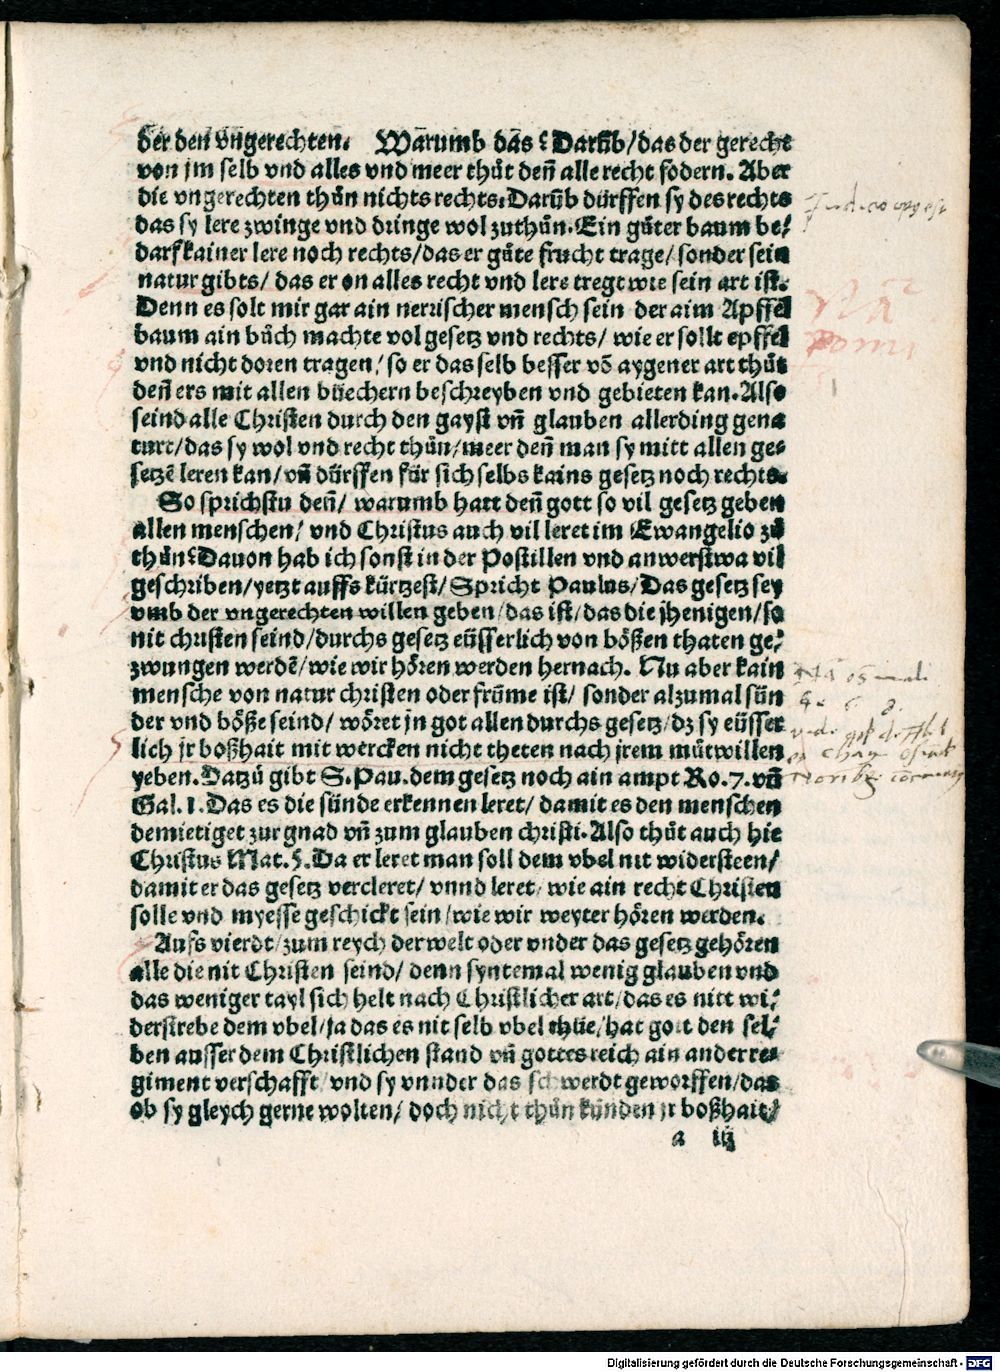 der den vngerechten. Warumb das? Darūb/das der gerecht
von jm selb vnd alles vnd meer thůt deñ alle recht fodern. Aber
die vngerechten thůn nichts rechts. Darūb dürffen sy des rechts
das sy lere zwinge vnd dringe wol zuthůn. Ein gůter baum be/
darf kainer lere noch rechts/das er gůte frucht trage/ sonder sein
natur gibts/ das er on alles recht vnd lere tregt wie sein art ist.
Denn es solt mir gar ain nerrischer mensch sein der aim Apffel
baum ain bůch machte vol gesetz vnd rechts/ wie er sollt epffel
vnd nicht doren tragen/ so er das selb besser võ aygener art thůt
deñ ers mit allen büechern beschreyben vnd gebieten kan. Also
seind alle Christen durch den gayst vñ glauben allerding gena
turt/das sy wol vnd recht thůn/meer deñ man sy mitt allen ge⸗
setzē leren kan/ vñ dürffen für sich selbs kains gesetz noch rechts.
So sprichstu deñ/ warumb hatt deñ gott so vil gesetz geben
allen menschen/ vnd Christus auch vil leret im Ewangelio zů
thůn? Dauon hab ich sonst in der Postillen vnd anwerstwa vil
geschriben/yetzt auffs kürtzest/Spricht Paulus/Das gesetz sey
vmb der vngerechten willen geben/das ist/das die jhenigen/so
nit christen seind/durchs gesetz eüsserlich von bößen thaten ge/
zwungen werdē/wie wir hören werden hernach. Nu aber kain
mensche von natur christen oder frūme ist/ sonder alzumal sün
der vnd böße seind/ wöret jn got allen durchs gesetz/dz sy eüsser
lich jr boßhait mit wercken nicht theten nach jrem můtwillen
yeben. Datzů gibt S. Pau. dem gesetz noch ain ampt Ro. 7. vñ
Gal. 1. Das es die sünde erkennen leret/ damit es den menschen
demietiget zur gnad vñ zum glauben christi. Also thůt auch hie
Christus Mat. 5. Da er leret man soll dem vbel nit widersteen/
damit er das gesetz vercleret/ vnnd leret/ wie ain recht Christen
solle vnd myesse geschickt sein/wie wir weyter hören werden.
Aufs vierdt/zum reych der welt oder vnder das gesetz gehören
alle die nit Christen seind/ denn syntemal wenig glauben vnd
das weniger tayl sich helt nach Christlicher art/das es nitt wi/
derstrebe dem vbel/ja das es nit selb vbel thüe/hat gott den sel/
ben ausser dem Christlichen stand vñ gottes reich ain ander re⸗
giment verschafft/vnd sy vnnder das schwerdt geworffen/das
ob sy gleych gerne wolten/ doch nicht thůn künden jr boßhait/
a iij
Digitalisierung gefördert durch die Deutsche Forschungsgemeinschaft - DFG